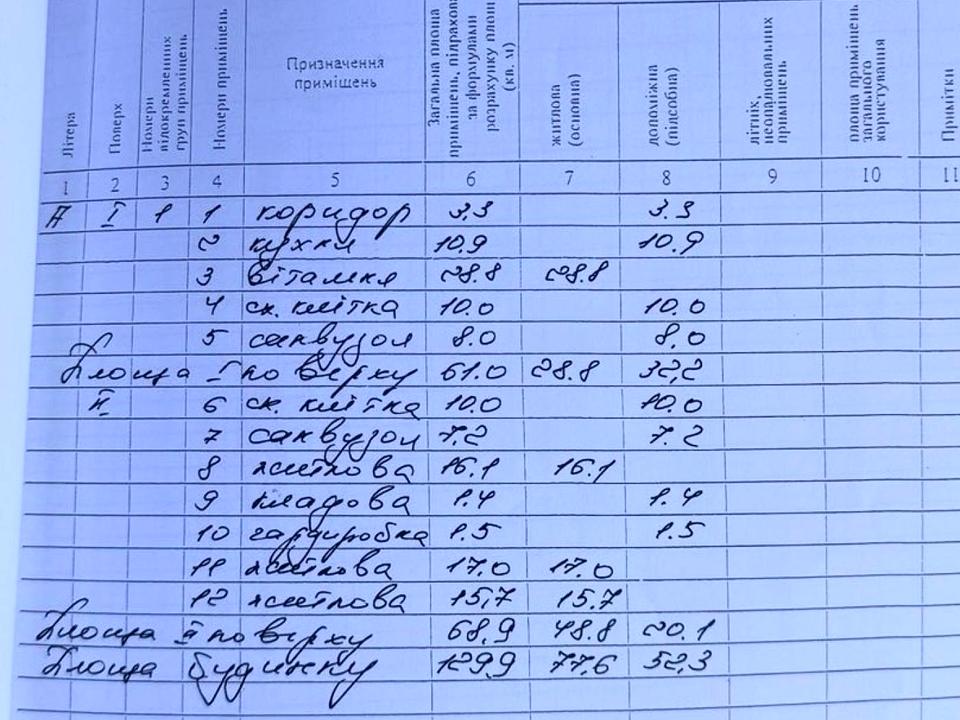 Літера Поверх Номери відокремлених груп приміщень Номери приміщень Призначення приміщень Загальна площа приміщень, підрахована за формулами розрахунку площ (кв. м) житлова (основна) допоміжна (підсобна) літніх, неопалювальних приміщень площа приміщень загального користування Примітки
1 2 3 4 5 6 7 8 9 10 11
А І 1 1 коридор 3.3 3.3
2 кухня 10.9 10.9
3 вітальня 28.8 28.8
4 сх. клітка 10.0 10.0
5 санвузол 8.0 8.0
Площа І поверху 61.0 28.8 32,2
ІІ 6 сх. клітка 10.0 10.0
7 санвузол 7.2 7.2
8 житлова 16.1 16.1
9 кладова 1.4 1.4
10 гардиробка 1.5 1.5
11 житлова 17.0 17.0
12 житлова 15,7 15.7
Площа ІІ поверху 68,9 48.8 20.1
Площа будинку 129,9 77,6 52,3